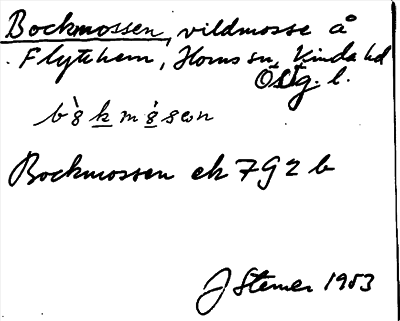 Bockmossen, vildmosse å
Flythem, Horns sn, Kinda hd
Östg. l.
Bockmossen ek 7G2b
J Stemer 1953